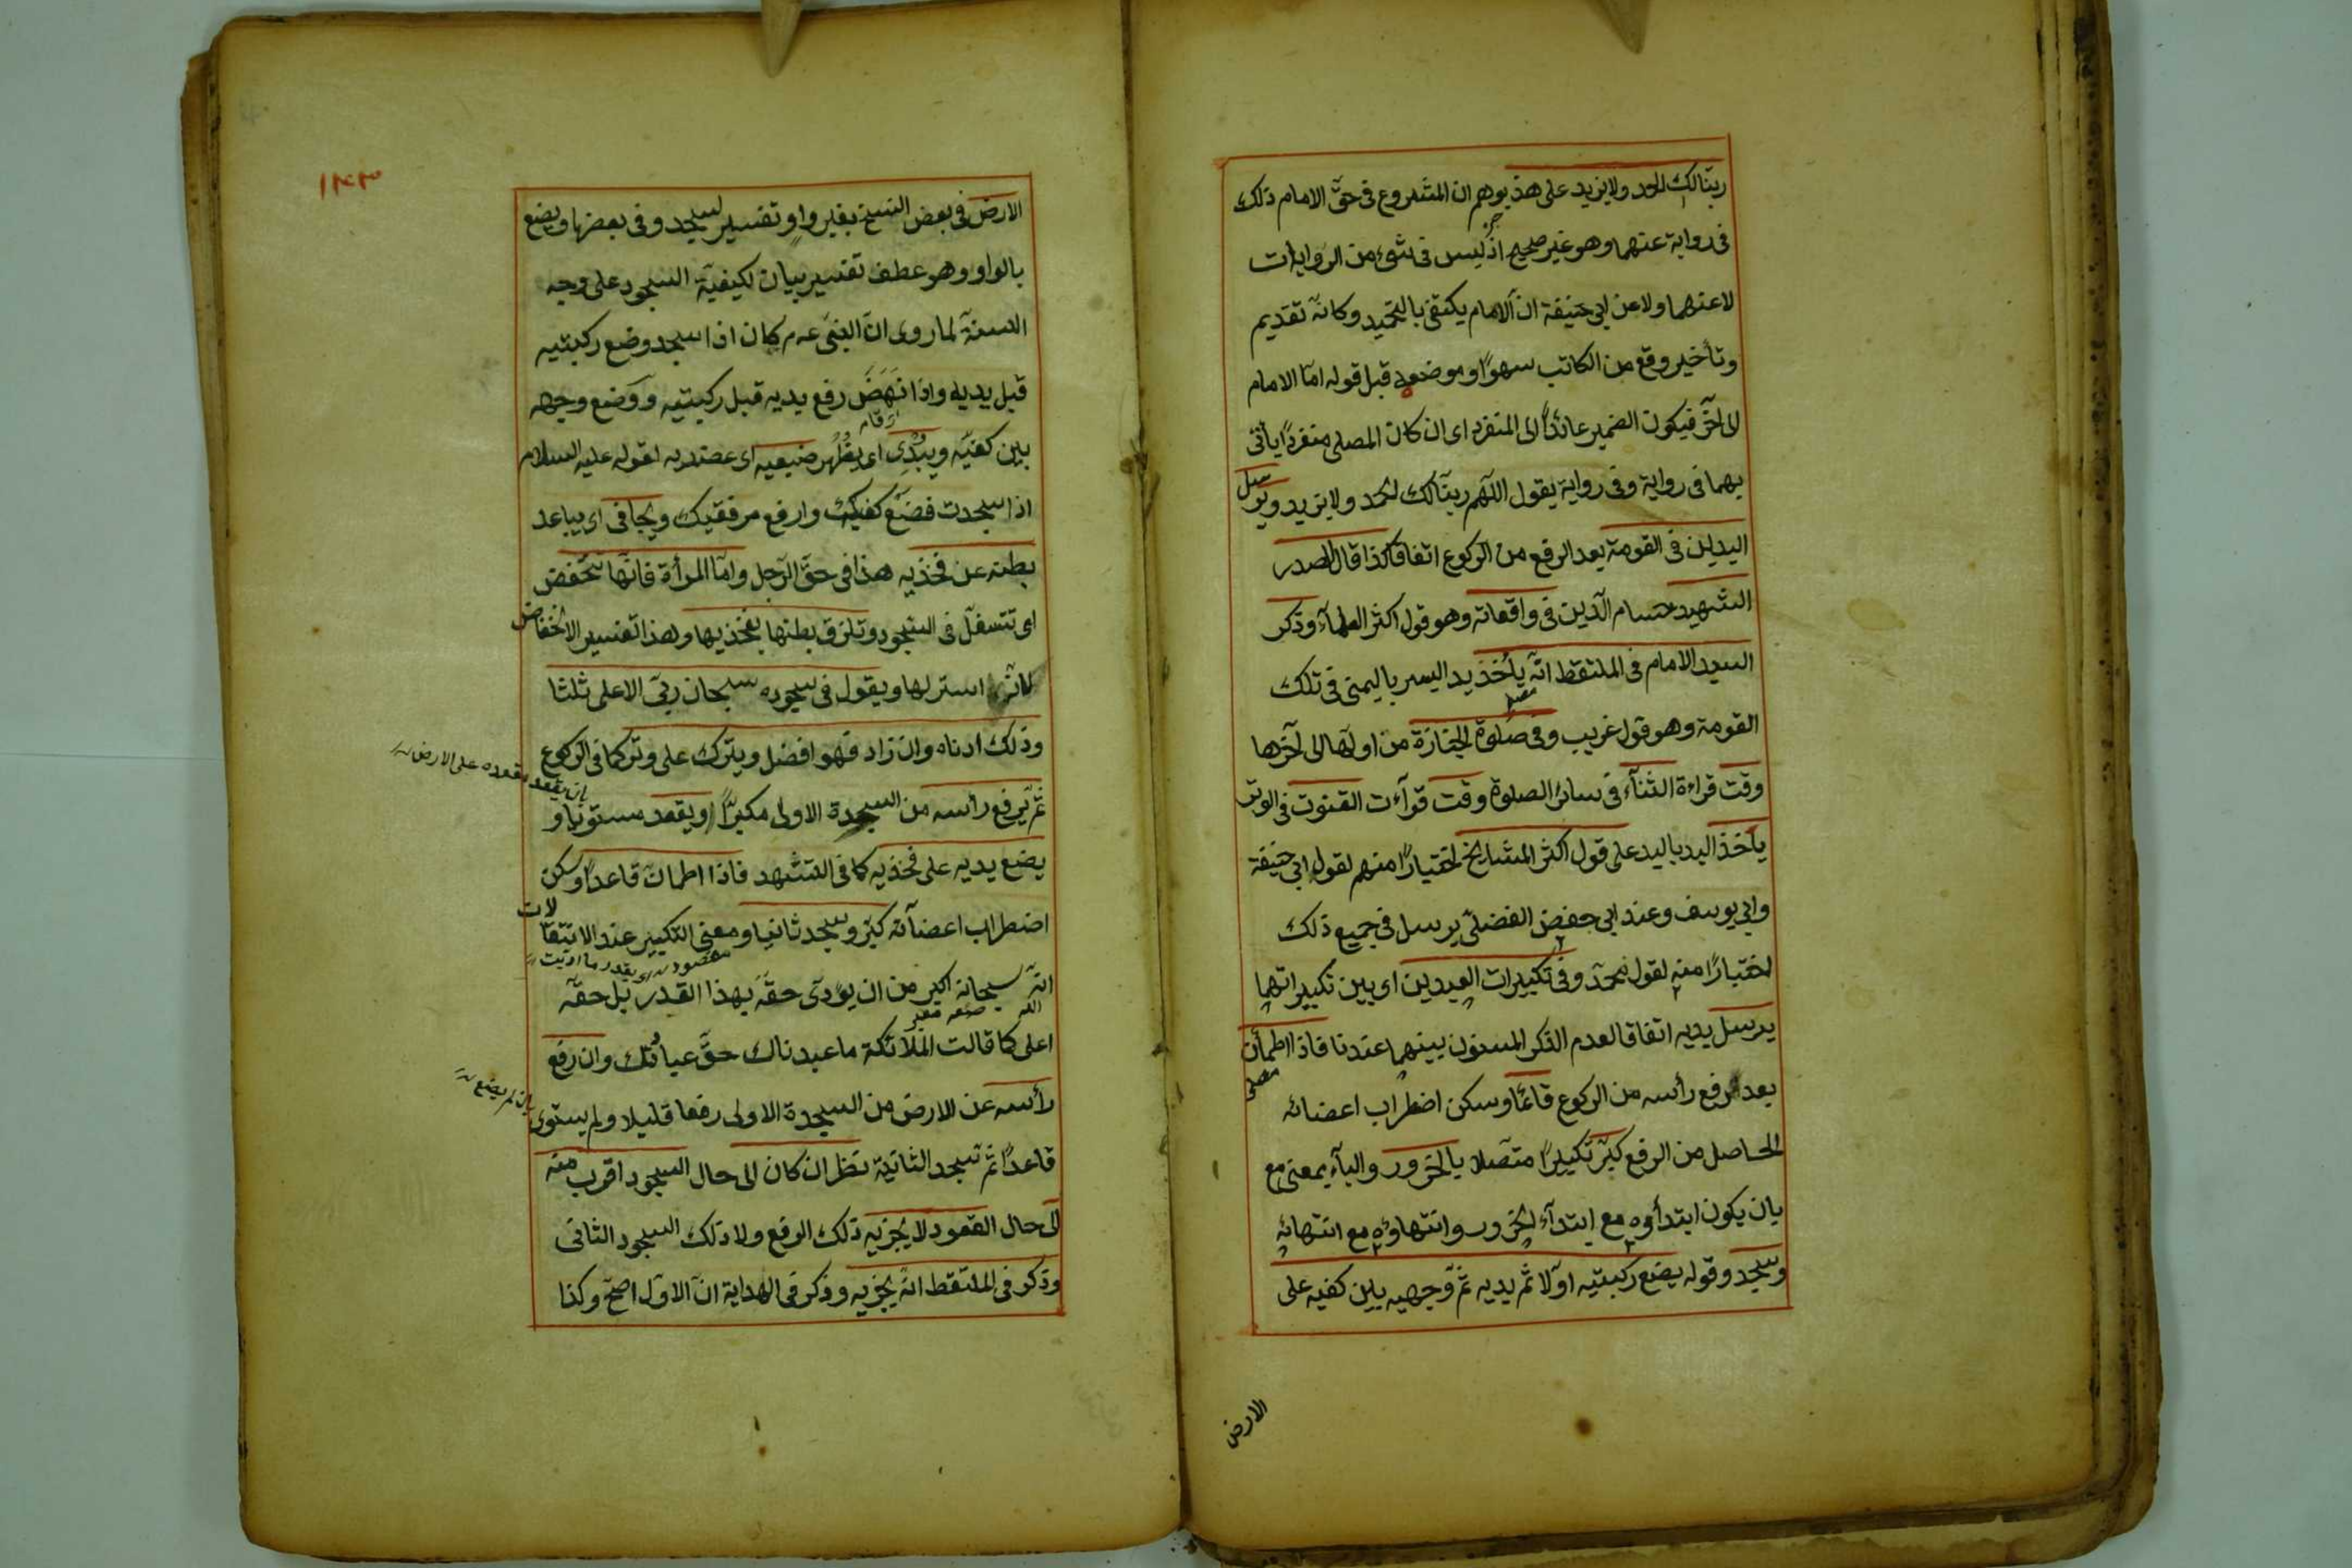 ربنا لك الحمد ولا يزيد على هذا يوهم ان المشروع فى حق الامام ذلك
فى رواية عنهما وهو غير صحيح اذ ليس فى شئ من الروايات
لا عنهما ولا عن ابى حنيفة ان الامام يكتفى بالتحميد وكانه تقديم
وتأخير وقع من الكاتب سهوًا وموضعه قبل قوله امّا الامام
الى آخره فيكون الضمير عائدًا الى المنفرد اى ان كان المصلى منفردًا يأتى
بهما فى رواية وفى رواية يقول اللهم ربنا لك الحمد ولا يزيد ويرسل
اليدين فى القومة بعد الرفع من الركوع اتفاقا كذا قال الصدر
الشهيد حسام الدين فى واقعاته وهو قول اكثر العلمآء وذكر
السيد الامام فى الملتقط انه يأخذ يد اليسر باليمنى فى تلك
القومة وهو قول غريب وفى صلوة الجنازة من اولها الى آخرها
وقت قراءة الثنآء فى سائر الصلوة وقت قرآءت القنوت فى الوتر
يأخذ اليد باليد على قول اكثر المشايخ اختيارًا منهم لقول ابى حنيفة
وابى يوسف وعند ابى حفص الفضلى يرسل فى جميع ذلك
اختيارًا منه لقول محمد وفى تكبيرات العيدين اى بين تكبيراتهما
يرسل يديه اتفاقا لعدم الذكر المسنون بينهما عندنا فاذا اطمأن
مصلى
بعد الرفع رأسه من الركوع قائمًا وسكن اضطراب اعضائه
الحاصل من الرفع كبّر تكبيرًا متصلا بالخرور والبآء بمعنى مع
بان يكون ابتدأوه مع ابتدآء الخرور وانتهاؤه مع انتهائه
وسجد وقوله يضع ركبتيه اولا ثم يديه ثم وجهيه بين كفيه على
الارض
١٢٣
الارض فى بعض النسخ بغير واو تفسير لسجد وفى بعضها ويضع
بالواو وهو عطف تفسير بيان لكيفية السجود على وجه
السنة لما روى ان النبى عم كان اذا سجد وضع ركبتيه
قبل يديه واذا نَهَضَ رفع يديه قبل ركبتيه ووضع وجهه
اى قام
بين كفيه ويبدى اى يظهر ضبعيه اى عضديه لقوله عليه السلام
اذا سجدت فضع كفيك وارفع مرفقيك ويجافى اى يباعد
بطنه عن فخذيه هذا فى حق الرجل وامّا المرأة فانها تنخفض
اى تتسفل فى السجود وتلزق بطنها بفخذيها وهذا تفسير الانخفاض
لانه استر لها ويقول فى سجوده سبحان ربى الاعلى ثلثا
وذلك ادناه وان زاد فهو افضل ويترك على وتر كما فى الركوع
بان يقعد مقعده على الارض
ثم يرفع رأسه من السجدة الاولى مكبرًا ويقعد مستويا و
يضع يديه على فخذيه كما فى التشهد فاذا اطمان قاعدًا وسكن
اضطراب اعضآئه كبّر وسجد ثانيا ومعنى التكبير عند الانتقالات
انه سبحانه اكبر من ان يؤدى حقه بهذا القدر بل حقه
اعلى كما قالت الملائكة ما عبدناك حقّ عبادتك وان رفع
رأسه عن الارض من السجدة الاولى رفعا قليلا ولم يستوى
بان لم يضع
قاعدًا ثم سجد الثانية نظر ان كان الى حال السجود اقرب منه
الى حال القعود لا يجزيه ذلك الرفع ولا ذلك السجود الثانى
وذكر فى الملتقط انه يجزيه وذكر فى الهداية ان الاول اصح وكذا